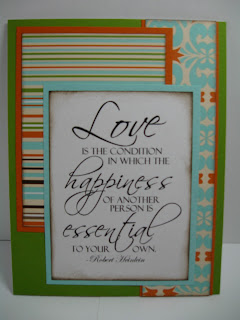 Love
IS THE CONDITION
IN WHICH THE
happiness
OF ANOTHER
PERSON IS
essential
TO YOUR OWN.
-Robert Heinlein